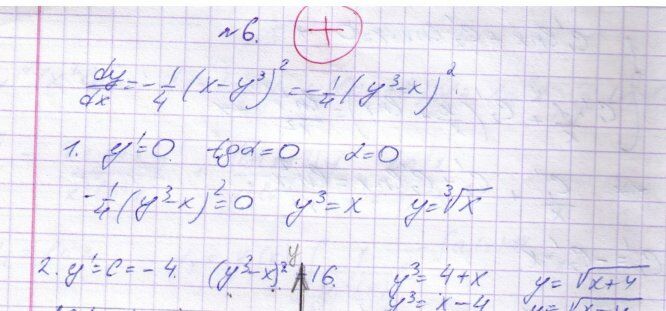 №6. +
dy/dx = -1/4 (x-y³)² = -1/4 (y³-x)².
1. y'=0. tgα=0. α=0
-1/4 (y³-x)²=0 y³=x y=∛x
2. y'=C=-4. (y³-x)²=16. y³=4+x y=∛x+4
y
y³=x-4